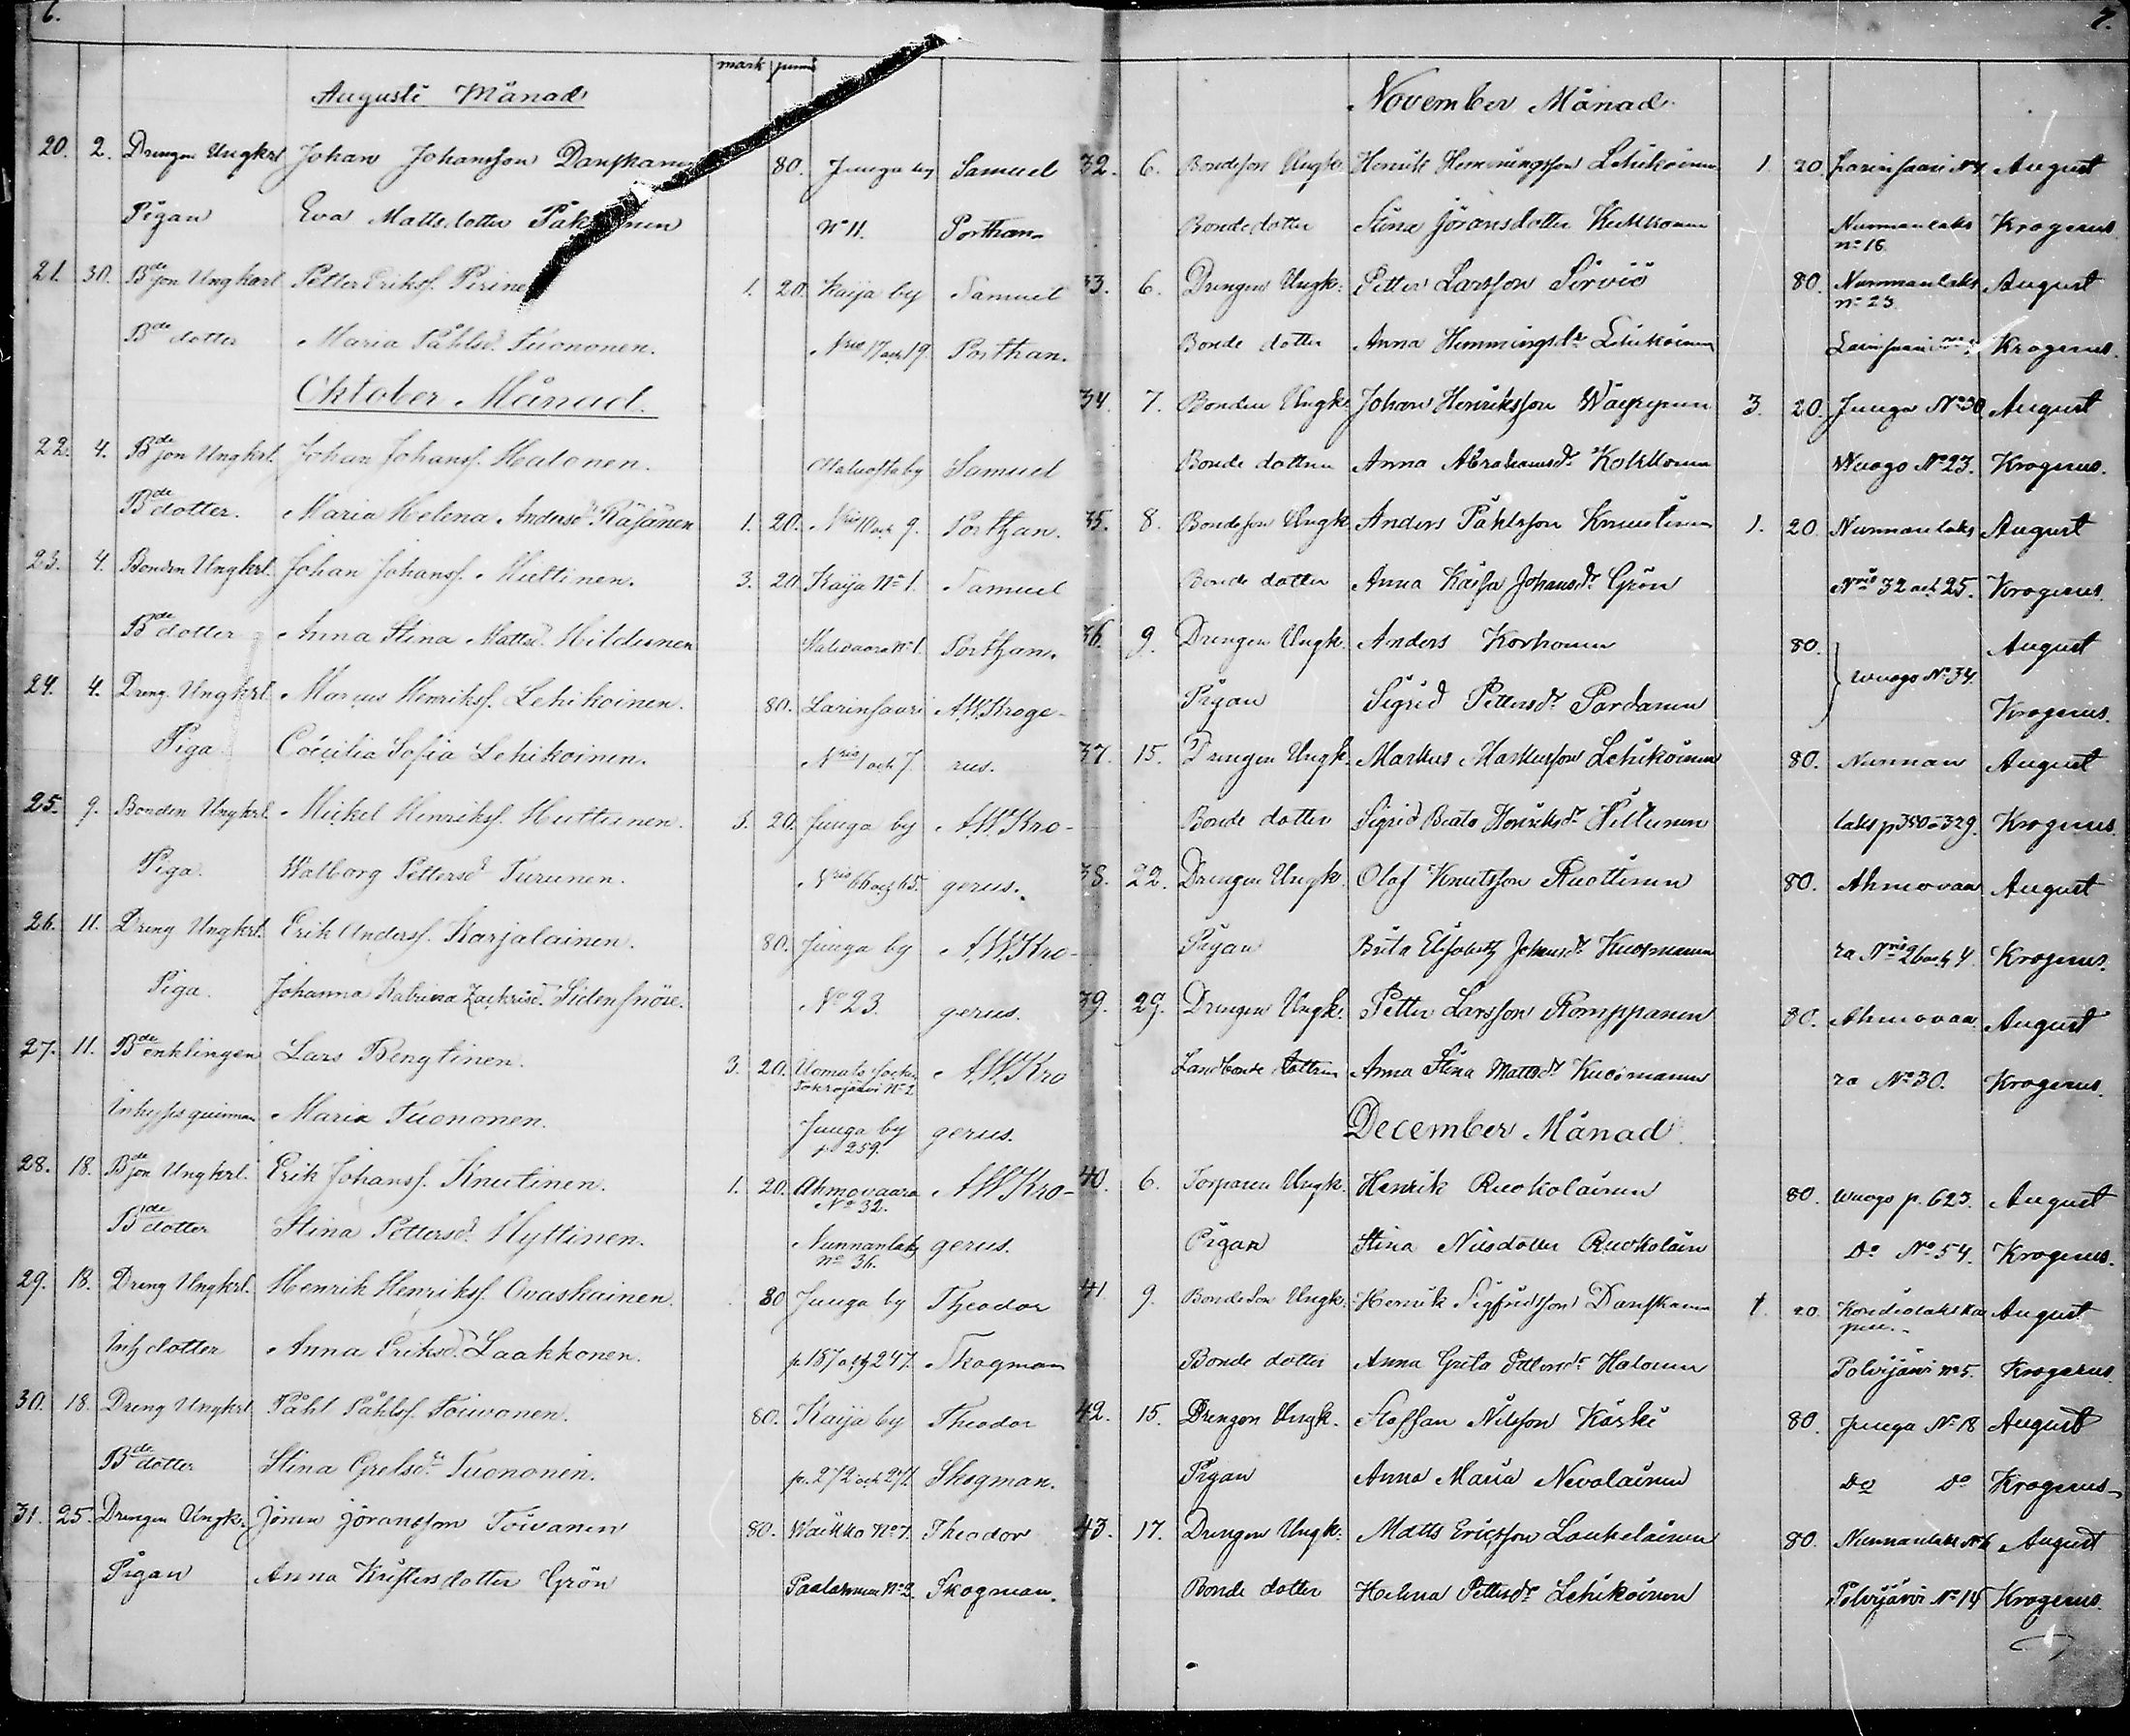 6.
mark penni
Augusti Månad
20. 2. Drengen Ungkrl Johan Johansson Danskanen 80. Juuga by Samuel
Pigan Eva Mattsdotter No 11. Porthan
21. 30. Bde son Ungkarl Petter Eriksf. Pirinen 1. 20. Kaija by Samuel
Bde dotter Maria Påhlsd. Tuononen. Nris 17 och 19. Porthan.
Oktober Månad.
22. 4. Bde son Ungkrl. Johan Johansf. Halonen. by Samuel
Bde dotter. Maria Helena Andersd. Räsänen 1. 20. Nris 10 och 9. Porthan.
23. 4. Bonden Ungkrl. Johan Johansf. Huttinen. 3. 20. Kaija No 1. Samuel
Bde dotter Anna Stina Mattsd. Hiltunen Halivaara No 1. Porthan.
24. 4. Dreng Ungkrl. Marcus Henriksf. Lehikoinen. 80. Larinsaari A.W. Kroge-
Piga Cœcilia Sofia Lehikoinen. Nris 1 och 7. rus.
25. 9. Bonden Ungkrl. Mickel Henriksf. Huttunen. 3. 20. Juuga by A.W. Kro-
Piga. Walborg Pettersd. Turunen. Nris 66 och 65. gerus.
26. 11. Dreng Ungkrl. Erik Andersf. Karjalainen. 80. Juuga by A.W. Kro-
Piga. Johanna Katrina Zachrisd. Sidensnöre. No 23. gerus.
27. 11. Bde enklingen Lars Bengtinen. 3. 20. A.W. Kro
Inhyses quinnan Maria Tuononen. Juuga by p. 259. gerus.
28. 18. Bde son Ungkrl. Erik Johansf. Knutinen. 1. 20. Ahmovaara No 32. A.W. Kro-
Bde dotter Stina Pettersd. Hyttinen. Nunnanlaks No 36. gerus.
29. 18. Dreng Ungkrl. Henrik Henriksf. Ovaskainen. 80 Juuga by Theodor
Inh dotter Anna Eriksd. Laakkonen. p. 187 och 247. Skogman
30. 18. Dreng Ungkrl Påhl Påhlsf. Toivonen. 80. Kaija by Theodor
Bde dotter Stina Grelsdr. Tuononen. p. 272 och 271. Skogman.
31. 25. Drengen Ungk. Jöran Göransson Toivanen 80. Waikko No 7. Theodor
Pigan Anna Kristersdotter Grön Paalasmaa No 2. Skogman.
7.
November Månad.
32. 6. Bondeson Ungk. Henrik Hemmingsson Lehikoinen 1. 20. Larinsaari No 7 August
Bondedotter Stina Göransdotter Kukkonen Nunnanlaks no 16. Krogerus
33. 6. Drengen Ungk. Petter Larsson Sirviö 80. Nunnanlaks no 23. August
Bonde dotter Anna Hemmingsdr Lehikoinen Larinsaari Krogerus.
34. 7. Bonden Ungk. Johan Henriksson Wäyrynen 3. 20. Juuga No 30 August
Bonde dottren Anna Abrahamsdr Kokkonen Wuogo No 23. Krogerus.
35. 8. Bondeson Ungk. Anders Påhlsson Knuutinen 1. 20. Nunnanlaks August
Bonde dotter Anna Kaisa Johansdr Grön Nris 32 och 25. Krogerus.
36. 9. Drengen Ungk. Anders Korhonen 80. August
Pigan Sigrid Pettersdr Pardanen Wuogo No 34. Krogerus.
37. 15. Drengen Ungk. Markus Markusson Lehikoinen 80. Nunnan August
Bonde dotter Sigrid Beata Henriksdr Hiltunen laks p 350 o 329. Krogerus
38. 22. Drengen Ungk. Olof Knutsson Ruottinen 80. Ahmovaa August
Pigan Brita Elisabeth Johansdr Kuosmanen ra Nris 26 och 4 Krogerus.
39. 29. Drengen Ungk. Petter Larsson Romppanen 80. Ahmovaa August
Landbonde dottren Anna Stina Mattsdr Kuosmanen ra No 30. Krogerus.
December Månad.
40. 6. Torparen Ungk. Henrik Ruokolainen 80. Wuogo p. 623. August
Pigan Stina Nilsdotter Ruokolain Do No 54. Krogerus.
41. 9. Bondeson Ungk. Henrik Sigfridsson Danskanen 1. 20. August
Bonde dotter Anna Greta Pettersdr Halonen Polvijärvi no 5. Krogerus
42. 15. Drengen Ungk. Staffan Nilsson Käski 80. Juuga No 18 August
Pigan Anna Maria Nevalainen Do Do Krogerus
43. 17. Drengen Ungk. Matts Ericsson Laukelainen 80. Nunnanlaks No 6 August
Bonde dotter Helena Pettersdr Lehikoinen Polvijärvi No 14 Krogerus